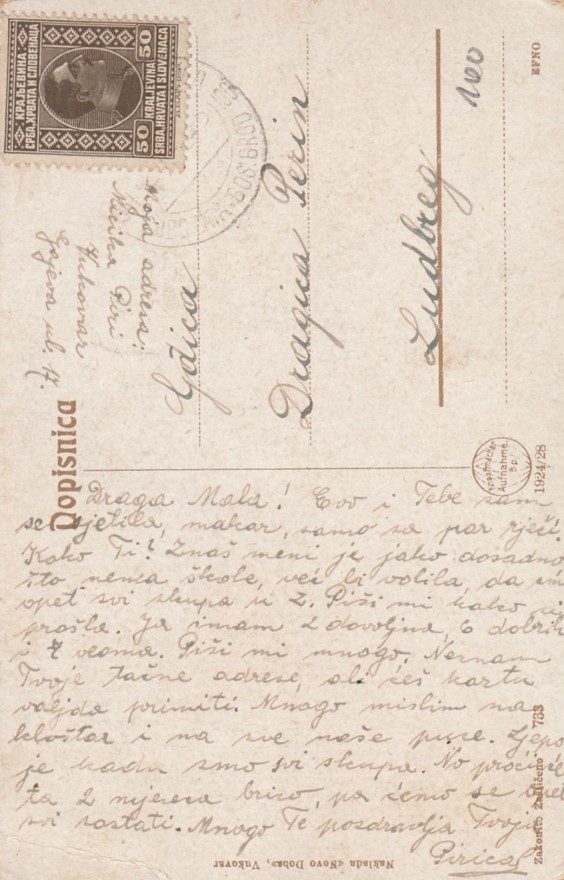 КРАЉЕВИНА
СРБА, ХРВАТА И СЛОВЕНАЦА
50 50
KRALJEVINA
SRBA, HRVATA I SLOVENACA
BOS. BROD
Moja adresa:
Piri
Vukovar
Gajeva ul. 17.
Dopisnica
Gđica
Dragica Perin
Ludbreg
100
EFNO
Aufnahme
Bp.
1924/28
Draga Mala! Evo i Tebe sam
se sjetila, makar, samo sa par rječi.
Kako Ti? Znaš meni je jako dosadno
što nema škole, već bi volila da smo
opet svi skupa u Z. Piši mi kako si
prošla. Ja imam 2 dovoljna, 6 dobrih
i 7 veoma. Piši mi mnogo. Neznam
Tvoje tačne adrese, ali ćeš kartu
valjda primiti. Mnogo mislim na
kloštar i na sve naše pure. Ljepo
je kada smo svi skupa. No proći će
ta 2 mjeseca brzo, pa ćemo se opet
svi sastati. Mnogo Te pozdravlja Tvoja
Pirica
Zakonito Zaštićeno 733
Naklada «Novo Doba», Vukovar